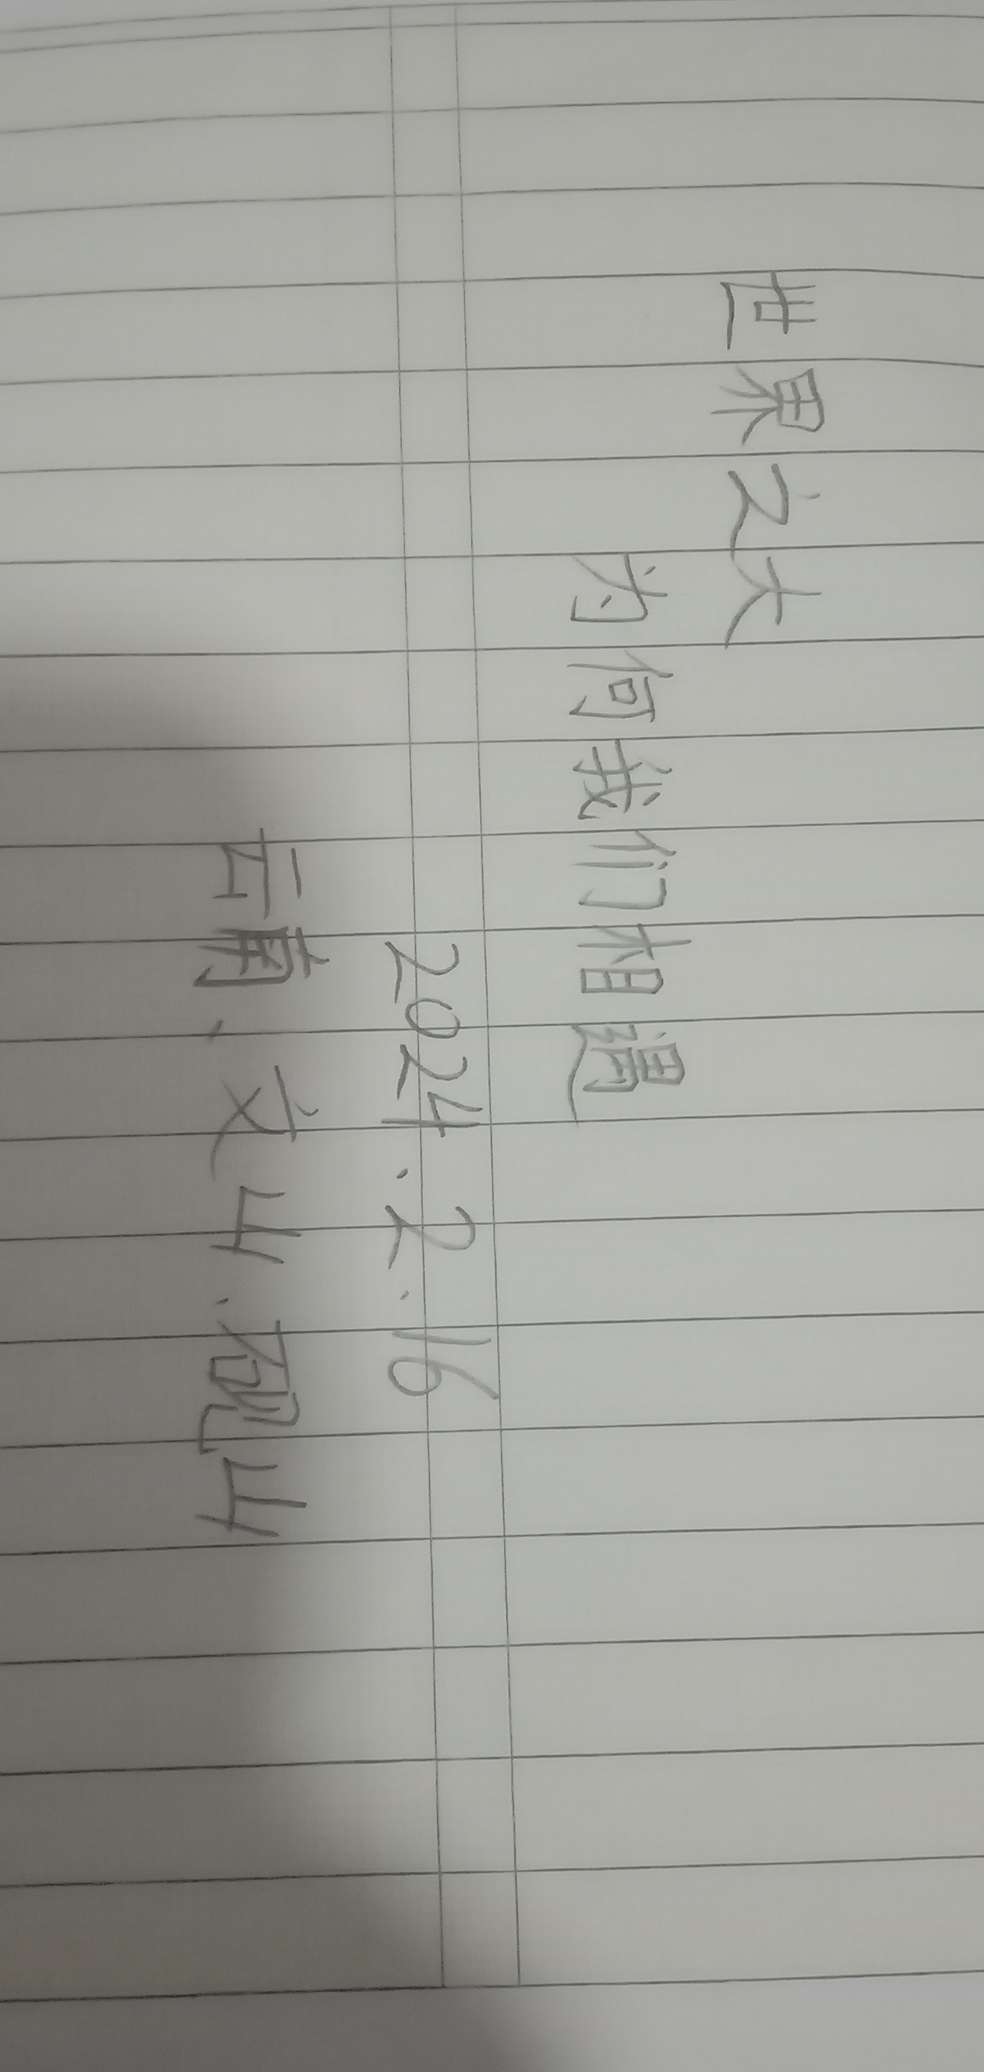 世界之大
为何我们相遇
2024.2.16
云南、文山.砚山